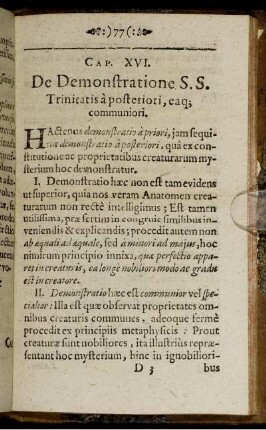 :)77(:
CAP. XVI.
De Demonſtratione S.S.
Trinitatis à poſteriori, eaq;
communiori.
HActenus demonſtratio à priori, jam ſequi-
tur demonſtratio à poſteriori, quâ ex con-
ſtitutione ac proprietatibus creaturarum my-
ſterium hoc demonſtratur.
I. Demonſtratio hæc non eſt tam evidens
ut ſuperior, quia nos veram Anatomen crea-
turarum non rectè intelligimus: Eſt tamen
utiliſſima, præſertim in congruis ſimilibus in-
veniendis & explicandis; procedit autem non
ab æquali ad æquale, ſed à minori ad majus, hoc
nimirum principio innixa, quæ perfectio appa-
ret in creaturis, ea longè nobiliori modo ac gradu
eſt in creatore.
II. Demonſtratio hæc eſt communior vel ſpe-
cialior: Illa eſt quæ obſervat proprietates om-
nibus creaturis communes, adeoque fermè
procedit ex principiis metaphyſicis: Prout
creaturæ ſunt nobiliores, ita illuſtriùs repræ-
ſentant hoc myſterium, hinc in ignobiliori-
D 3 bus